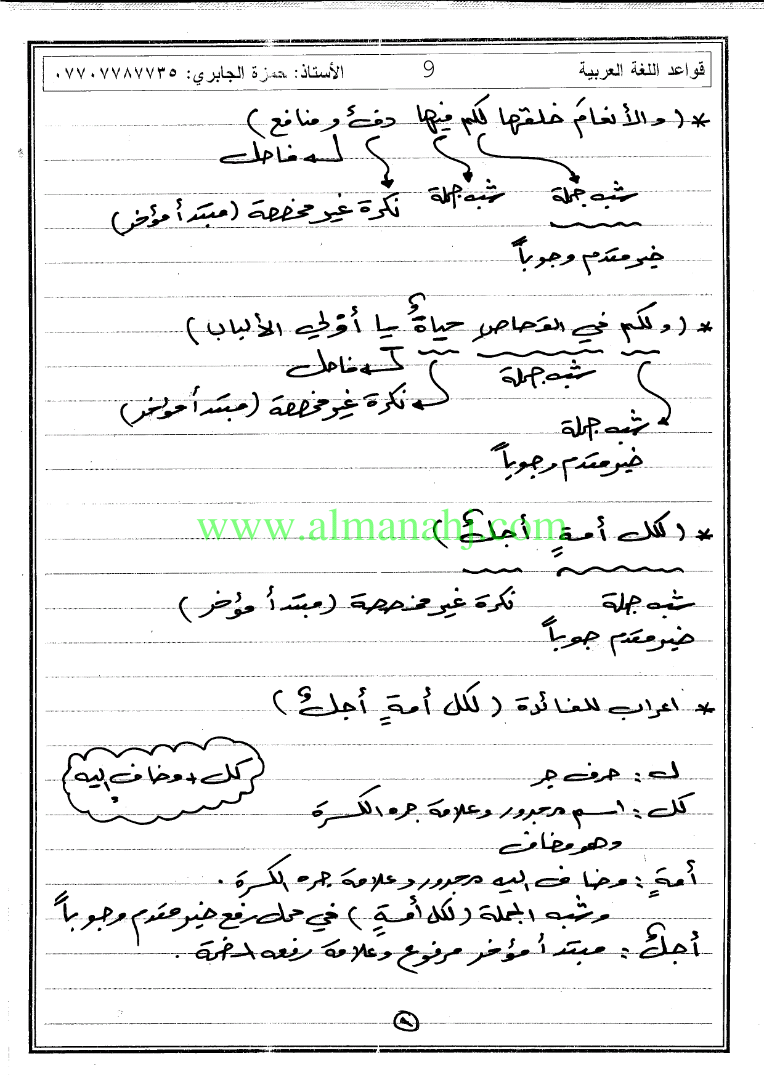 قواعد اللغة العربية 9 الأستاذ: حمزة الجابري: ٠٧٧٠٧٧٨٧٧٣٥
* ( والأنعام خلقها لكم فيها دفء ومنافع )
فاصل
شبه جملة شبه جملة نكرة غير مخصصة (مبتدأ مؤخر)
خبر مقدم وجوباً
* ( ولكم في القصاصِ حياةٌ يا أولي الألباب )
شبه جملة فاصل
نكرة غير مخصصة (مبتدأ مؤخر)
شبه جملة
خبر مقدم وجوباً
www.almanahj.com
* ( لكل أمةٍ أجلٌ )
شبه جملة نكرة غير مخصصة (مبتدأ مؤخر )
خبر مقدم جوباً
* اعراب للفائدة ( لكل أمةٍ أجلٌ )
لـ : حرف جر
كل + مضاف اليه
كل : اسم مجرور وعلامة جره الكسرة
وهو مضاف
أمةٍ : مضاف اليه مجرور وعلامة جره الكسرة .
وشبه الجملة ( لكل أمةٍ ) في محل رفع خبر مقدم وجوباً
أجلٌ : مبتدأ مؤخر مرفوع وعلامة رفعه الضمة .
٩